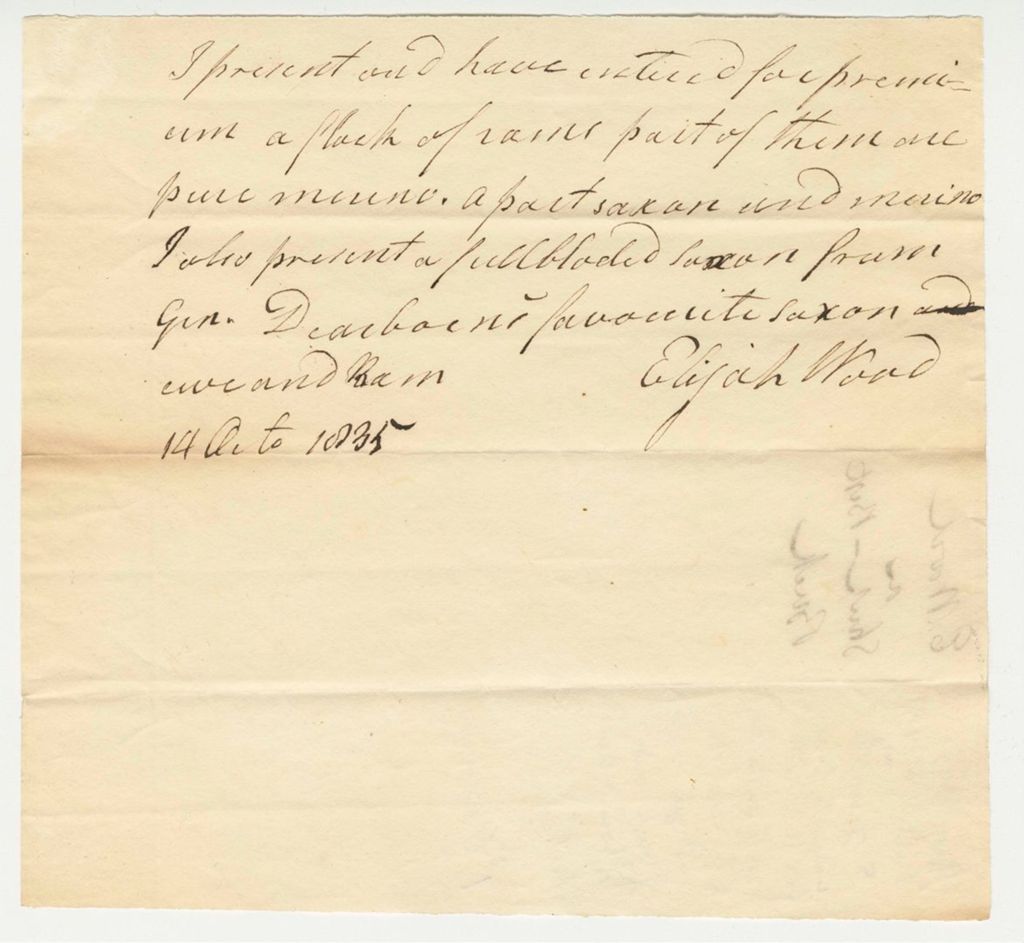 I present and have entered for premi=
um a flock of rams part of them are
pure merino. a part saxon and merino
I also present a fullbloded saxon from
Gen. Dearborns favourite saxon
ewe and Ram Elijah Wood
14 Octo 1835